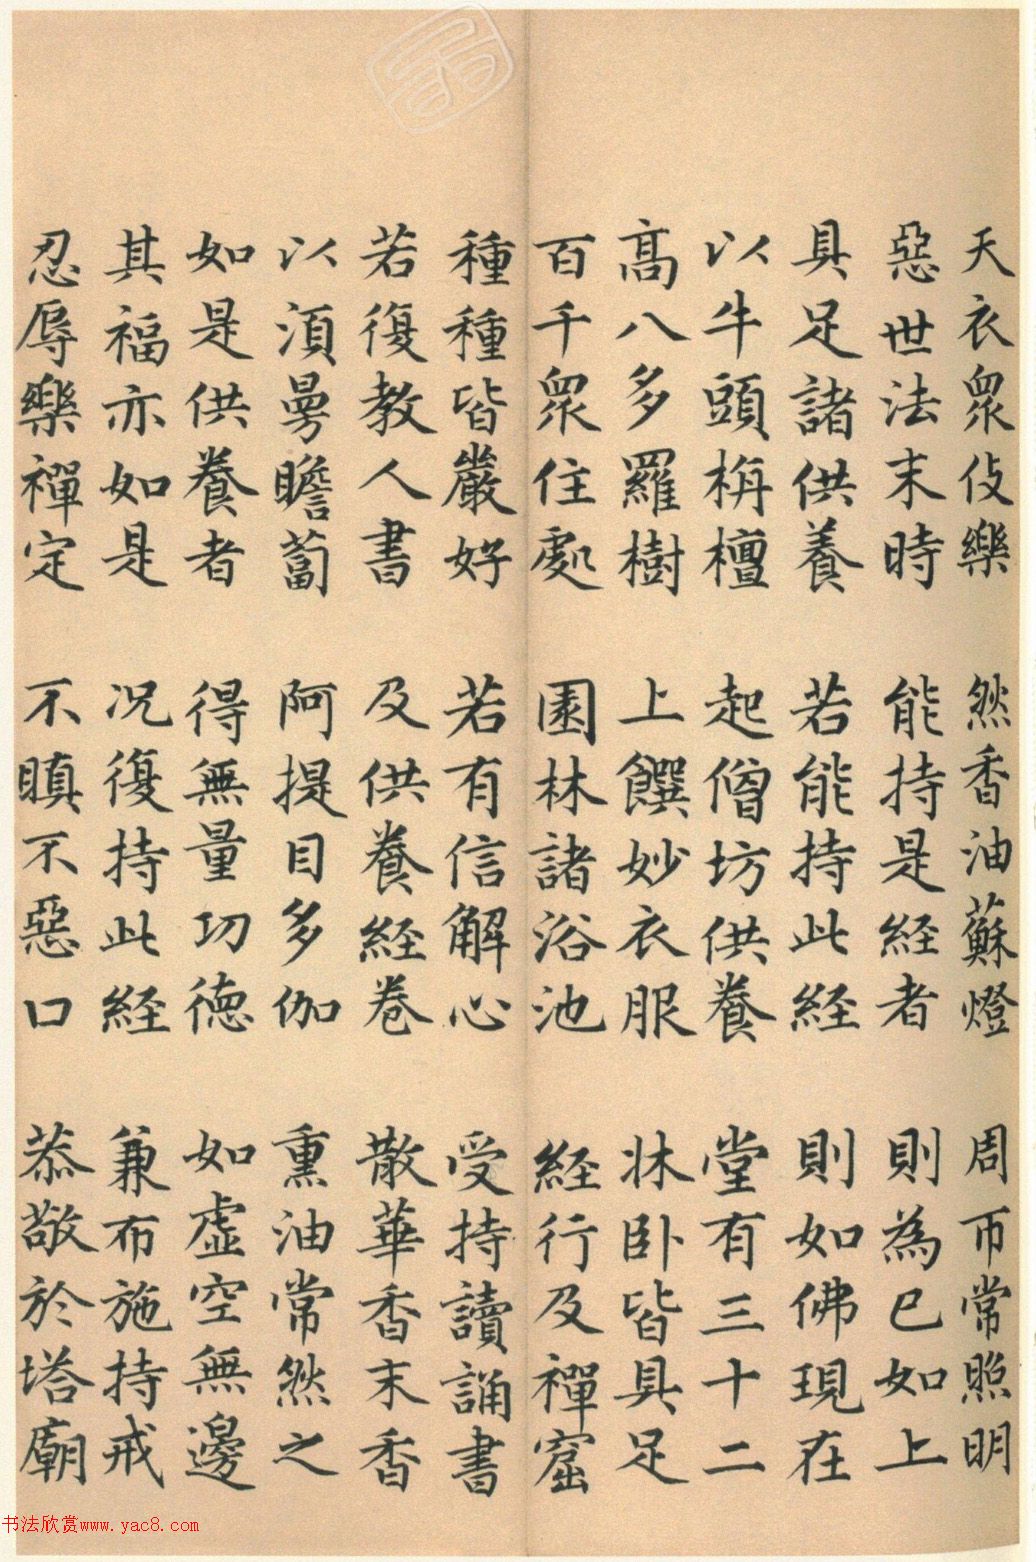 天衣眾伎樂 然香油蘇燈 周帀常照明
惡世法末時 能持是経者 則為已如上
具足諸供養 若能持此経 則如佛現在
以牛頭栴檀 起僧坊供養 堂有三十二
髙八多羅樹 上饌妙衣服 牀卧皆具足
百千眾住處 園林諸浴池 経行及禪窟
種種皆嚴好 若有信解心 受持讀誦書
若復教人書 及供養経卷 散華香末香
以湏曼瞻蔔 阿提目多伽 熏油常然之
如是供養者 得無量功德 如虛空無邊
其福亦如是 况復持此経 兼布施持戒
忍辱樂禪定 不瞋不惡口 恭敬於塔廟
书法欣赏www.yac8.com